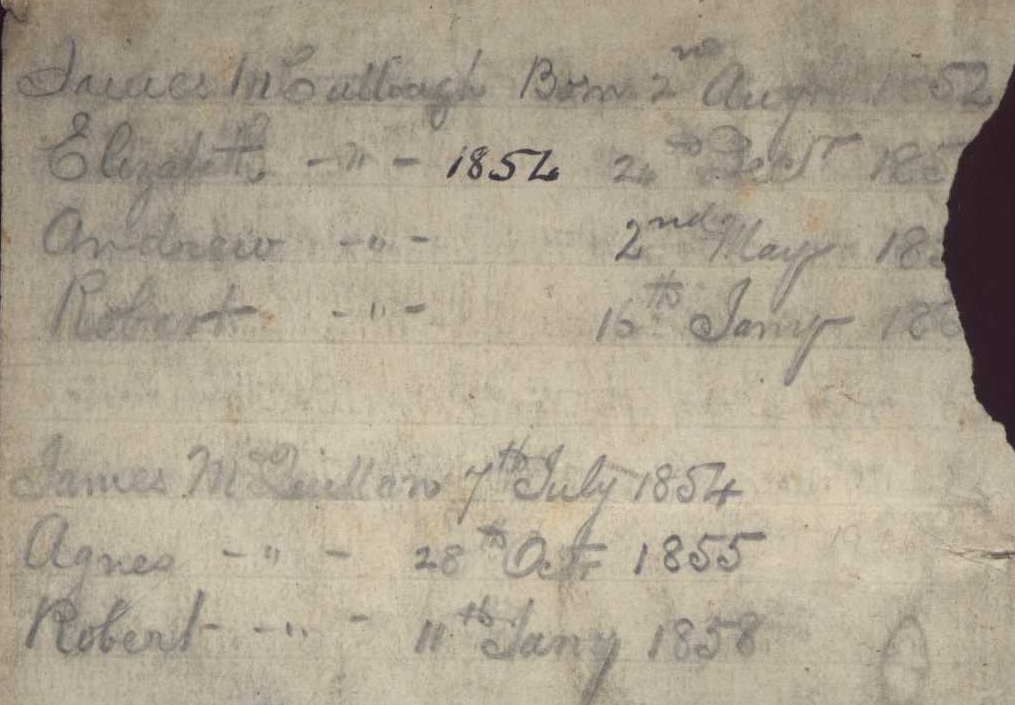 James McCullough Born 2nd Aug 1852
Elizabeth -"- 1854 24th Decr 185
Andrew -"- 2nd May 18
Robert -"- 16th Jany 18
James McQuillan 7th July 1854
Agnes -"- 28th Oct. 1855
Robert -"- 11th Jany 1858